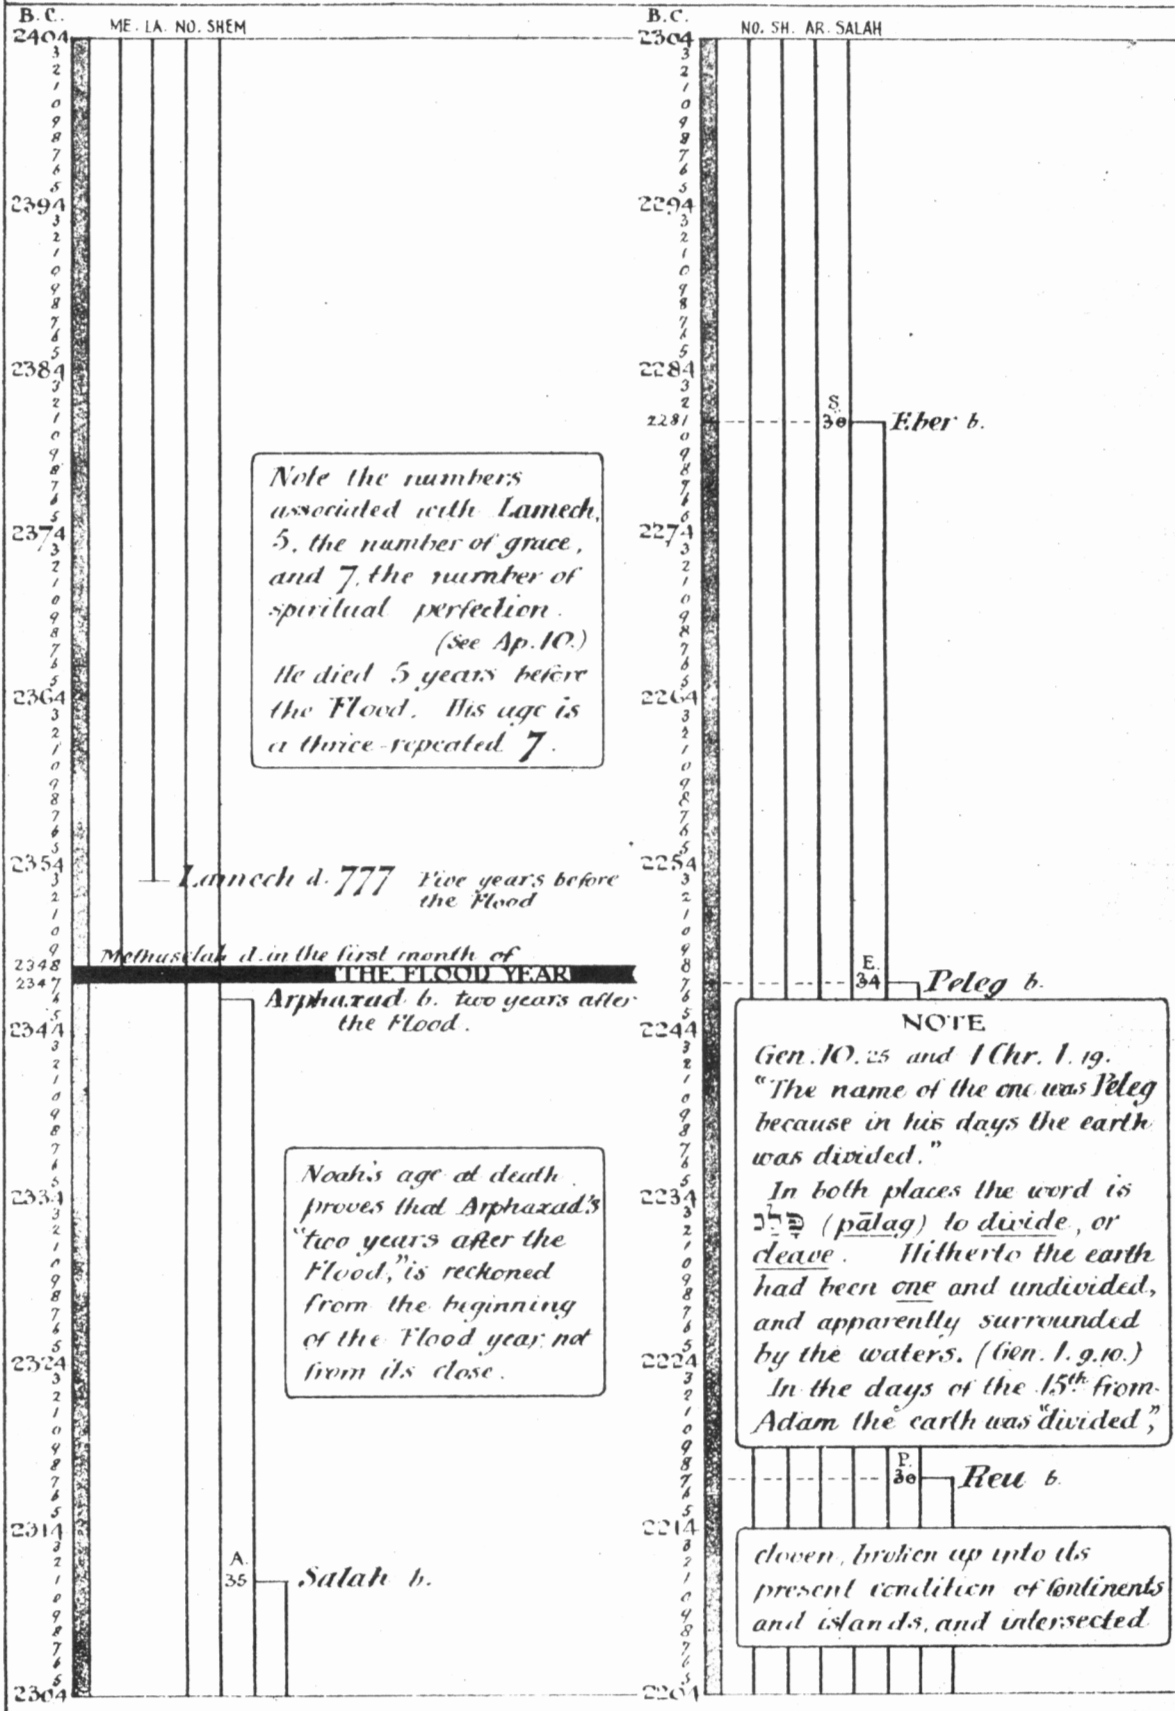 B.C.
ME. LA. NO. SHEM
2404
3
2
1
0
9
8
7
6
5
2394
3
2
1
0
9
8
7
6
5
2384
3
2
1
0
9
8
7
6
5
2374
3
2
1
0
9
8
7
6
5
2364
3
2
1
0
9
8
7
6
5
2354
3
2
1
0
9
2348
2347
6
5
2344
3
2
1
0
9
8
7
6
5
2334
3
2
1
0
9
8
7
6
5
2324
3
2
1
0
9
8
7
6
5
2314
3
2
1
0
9
8
7
6
5
2304
Note the numbers
associated with Lamech,
5, the number of grace,
and 7, the number of
spiritual perfection.
(See Ap. 10.)
He died 5 years before
the Flood. His age is
a thrice-repeated 7.
Lamech d. 777 Five years before
the Flood
Methuselah d. in the first month of
THE FLOOD YEAR
Arphaxad b. two years after
the Flood.
Noah's age at death
proves that Arphaxad's
"two years after the
Flood," is reckoned
from the beginning
of the Flood year, not
from its close.
A.
35 Salah b.
B.C.
NO. SH. AR. SALAH
2304
3
2
1
0
9
8
7
6
5
2294
3
2
1
0
9
8
7
6
5
2284
3
2
2281
0
9
8
7
6
6
2274
3
2
1
0
9
8
7
6
5
2264
3
2
1
0
9
8
7
6
5
2254
3
2
1
0
9
8
7
6
5
2244
3
2
1
0
9
8
7
6
5
2234
3
2
1
0
9
8
7
6
5
2224
3
2
1
0
9
8
7
6
5
2214
3
2
1
0
9
8
7
6
5
2204
S.
30 Eber b.
E.
34 Peleg b.
NOTE
Gen. 10. 25 and 1 Chr. 1. 19.
"The name of the one was Peleg
because in his days the earth
was divided."
In both places the word is
פָּלַג (pālag) to divide, or
cleave. Hitherto the earth
had been one and undivided,
and apparently surrounded
by the waters. (Gen. 1. 9.10.)
In the days of the 15th from
Adam the earth was "divided",
P.
30 Reu b.
cloven, broken up into its
present condition of Continents
and islands, and intersected